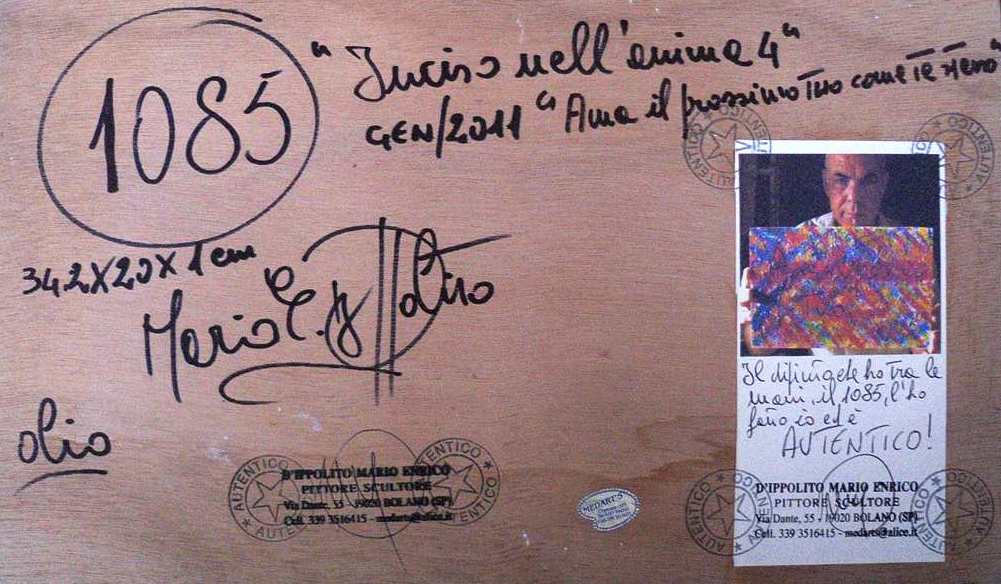 1085
"Inciso nell'anima 4"
GEN/2011 "Ama il prossimo Tuo come Te stesso"
34,2X20X1 cm
Mario E. D'Ippolito
olio
AUTENTICO AUTENTICO
D'IPPOLITO MARIO ENRICO
PITTORE SCULTORE
Via Dante, 55 - 19020 BOLANO (SP)
Cell. 339 3516415 - medarts@alice.it
MEDART'S
AUTENTICO AUTENTICO
Il dipinto che ho tra le
mani, il 1085, l'ho
fatto io ed è
AUTENTICO!
D'IPPOLITO MARIO ENRICO
PITTORE SCULTORE
Via Dante, 55 - 19020 BOLANO (SP)
Cell. 339 3516415 - medarts@alice.it
AUTENTICO AUTENTICO